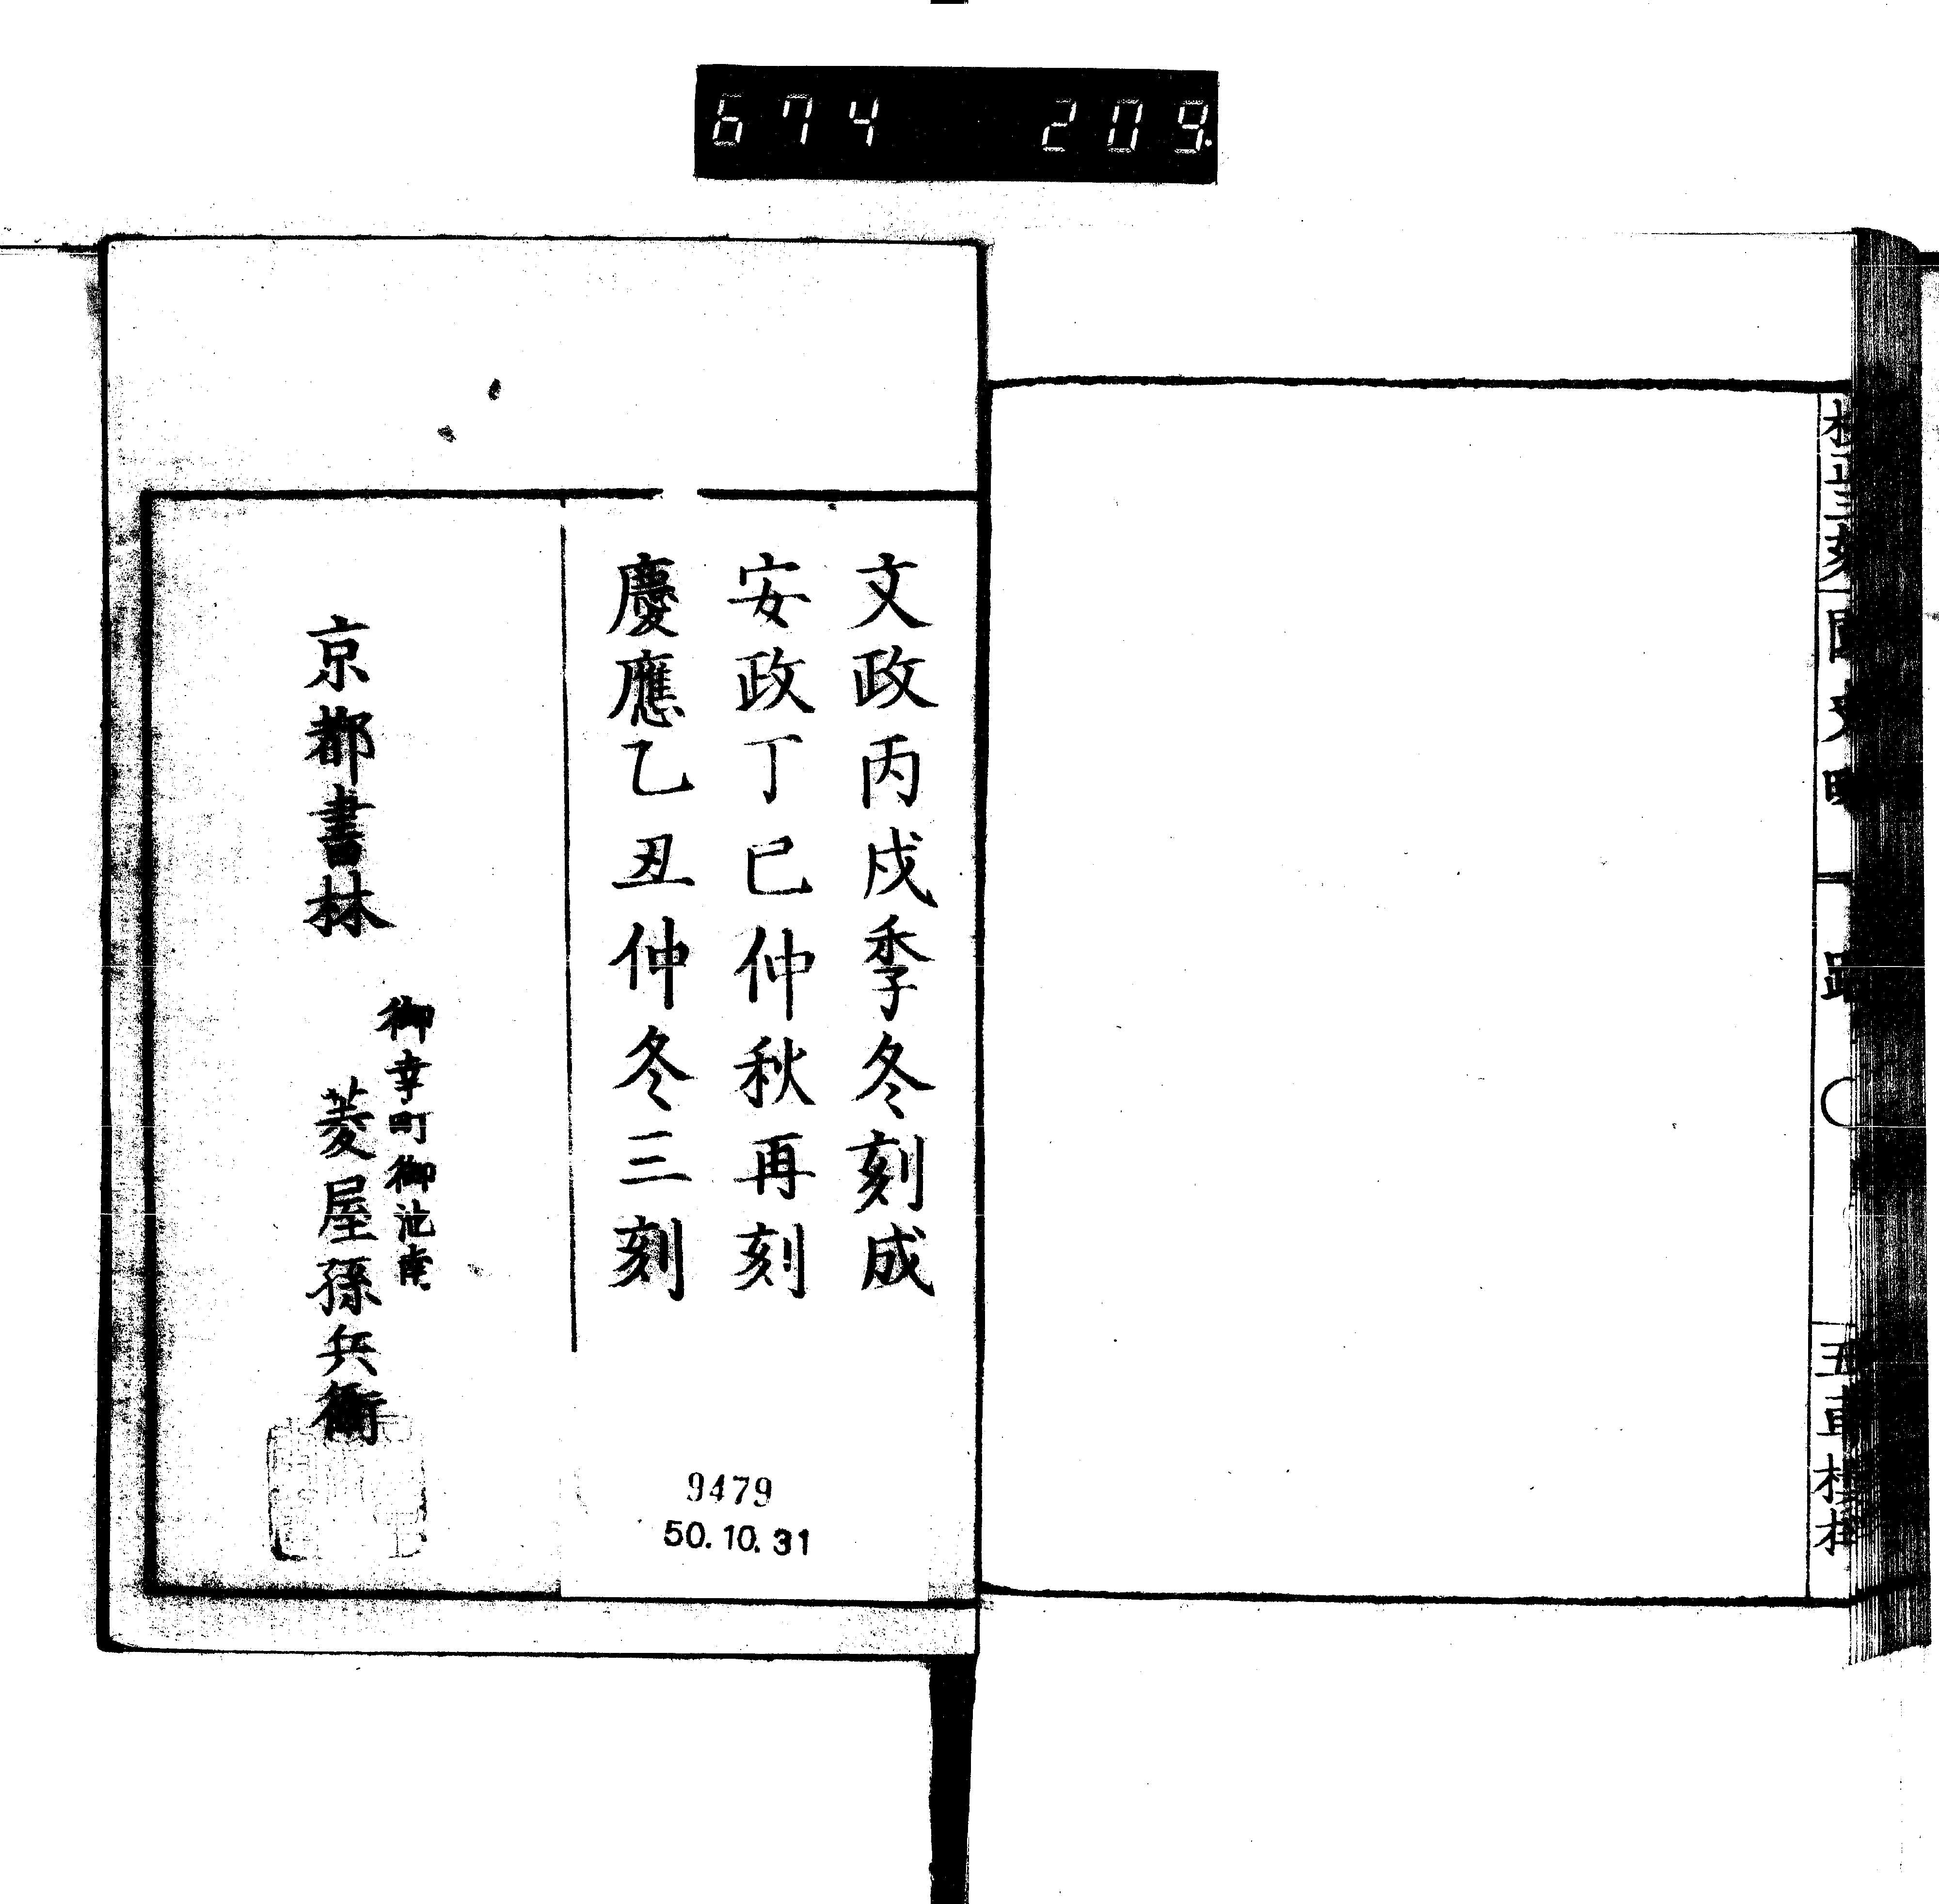 674 209
文政丙戌季冬刻成
安政丁巳仲秋再刻
慶應乙丑仲冬三刻
京都書林
御幸町御池南
菱屋孫兵衛
9479
50.10.31